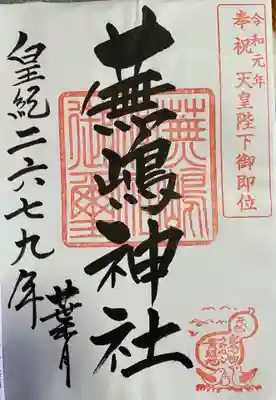 令和元年
奉祝 天皇陛下御即位
蕪嶋神社
皇紀二六七九年
葉月